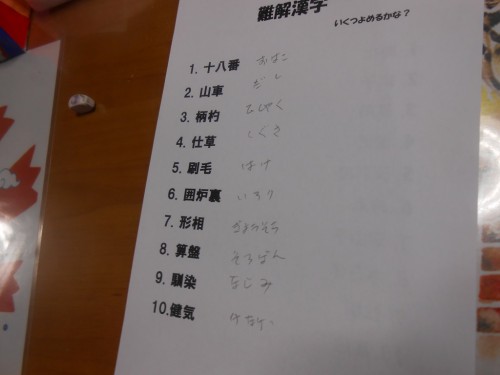 難解漢字
いくつよめるかな？
1. 十八番 おはこ
2. 山車 だし
3. 柄杓 ひしゃく
4. 仕草 しぐさ
5. 刷毛 はけ
6. 囲炉裏 いろり
7. 形相 ぎょうそう
8. 算盤 そろばん
9. 馴染 なじみ
10.健気 けなげ